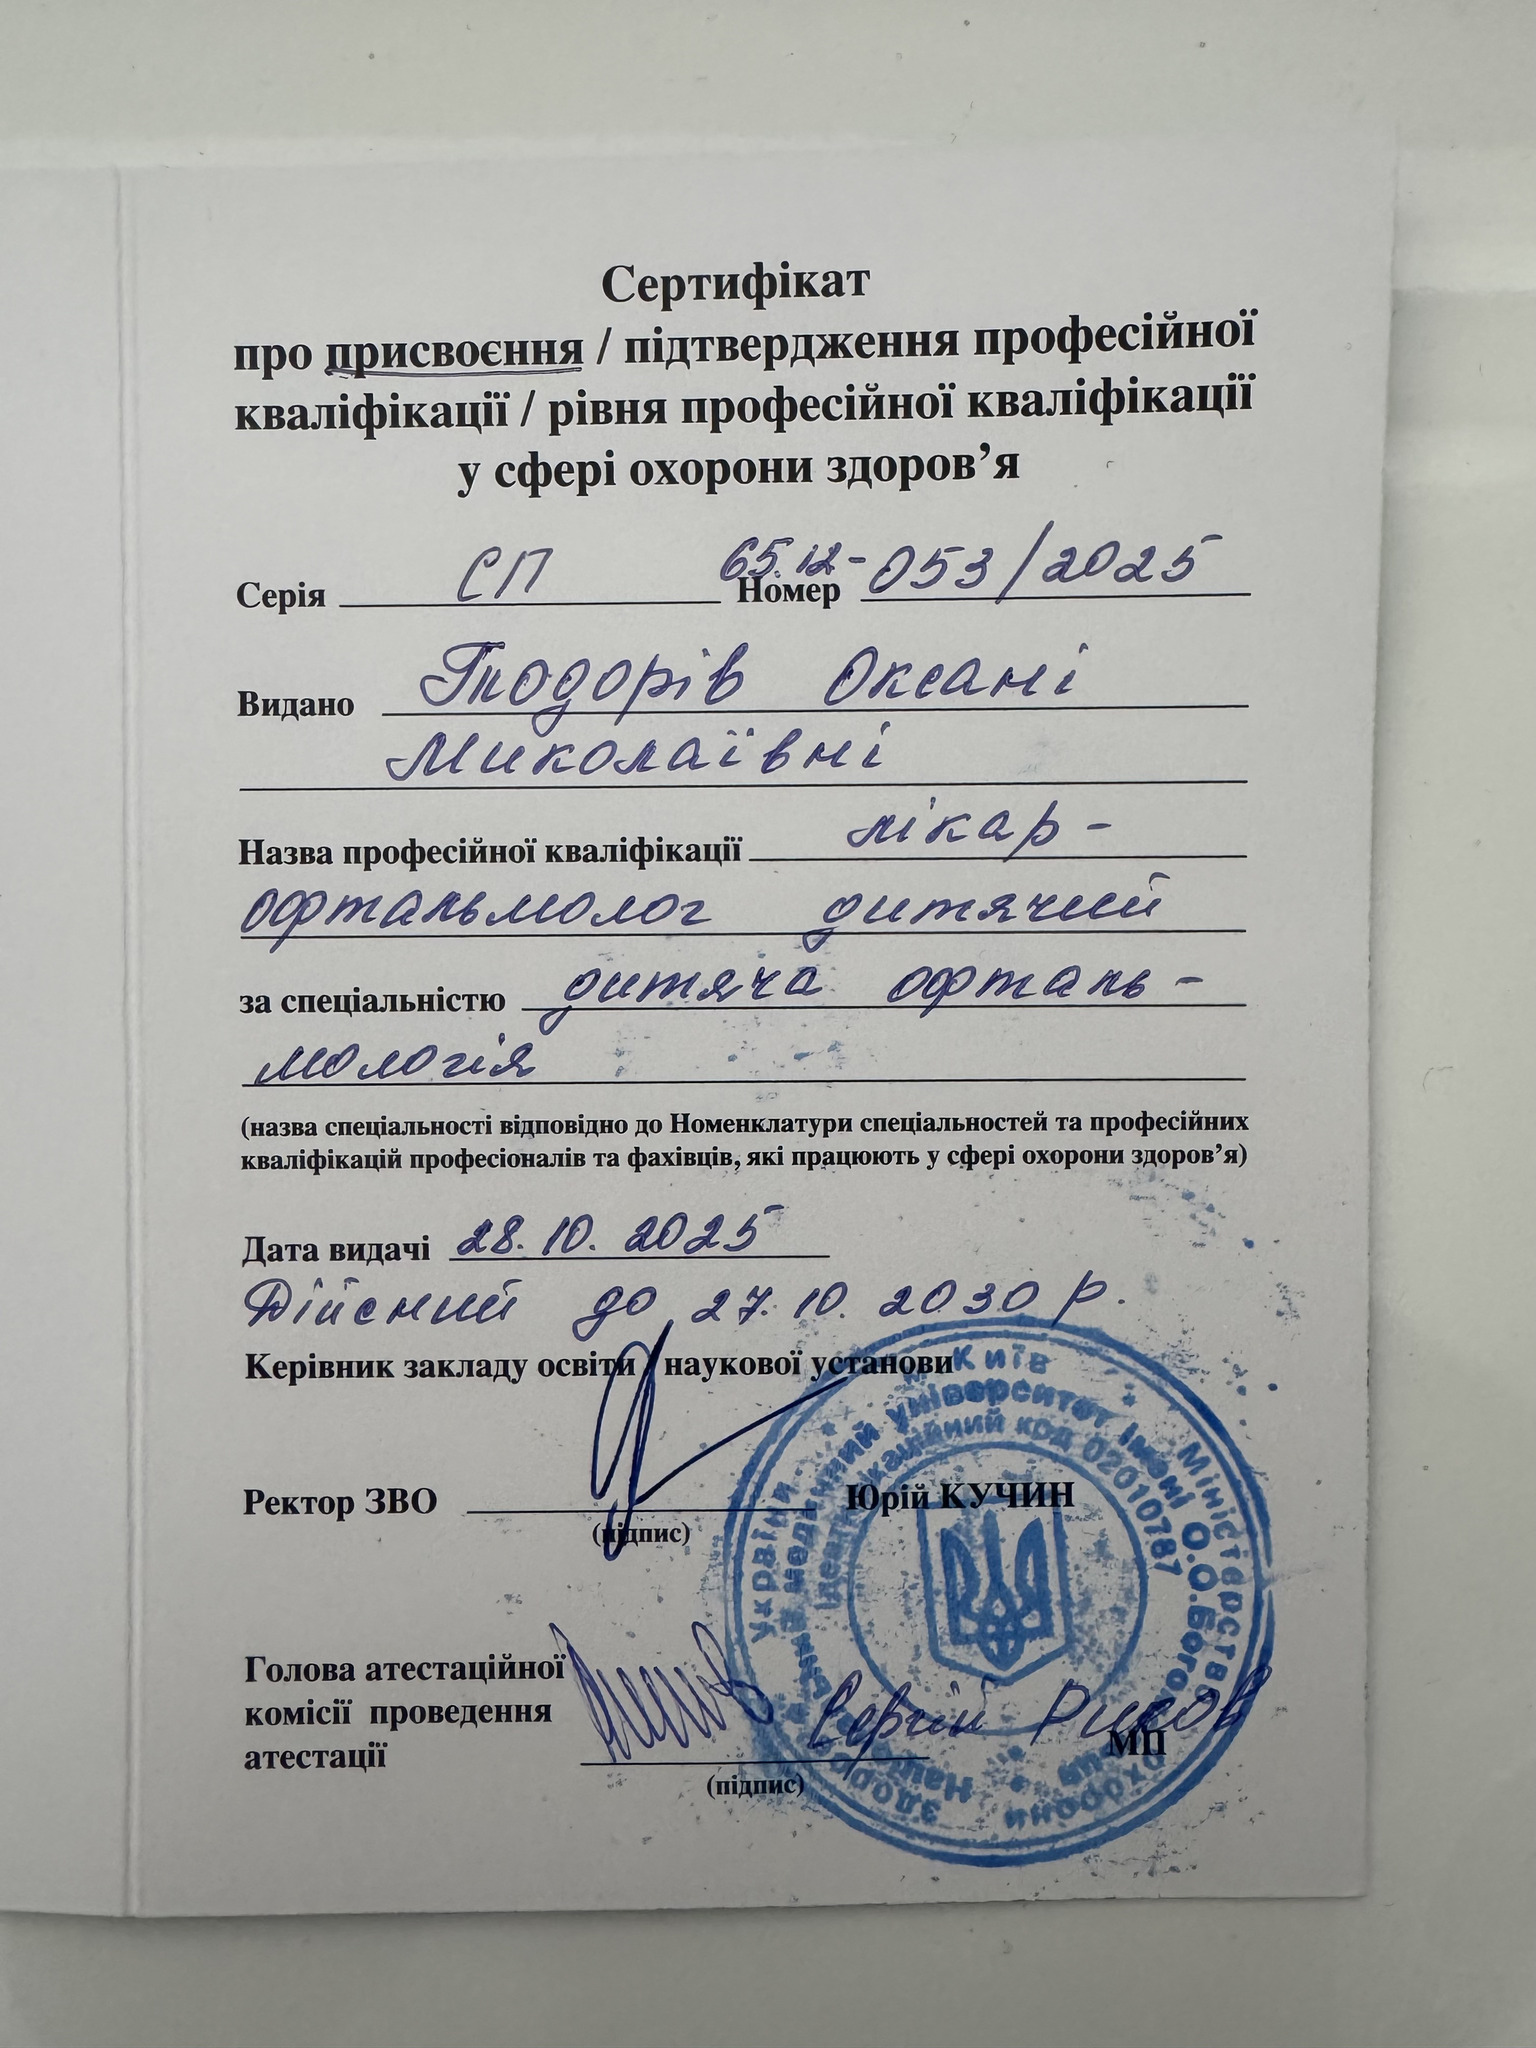 Сертифікат
про присвоєння / підтвердження професійної
кваліфікації / рівня професійної кваліфікації
у сфері охорони здоров’я
Серія СП Номер 65.12-053/2025
Видано Тюдорів Оксані
Миколаївні
Назва професійної кваліфікації лікар-
офтальмолог дитячий
за спеціальністю дитяча офталь-
мологія
(назва спеціальності відповідно до Номенклатури спеціальностей та професійних
кваліфікацій професіоналів та фахівців, які працюють у сфері охорони здоров’я)
Дата видачі 28.10.2025
Дійсний до 27.10.2030 р.
Керівник закладу освіти / наукової установи
Ректор ЗВО Юрій КУЧИН
(підпис)
Голова атестаційної
комісії проведення
атестації Сергій Риков
МП
(підпис)
Міністерство охорони здоров'я України
медичний університет імені О.О.Бого
Ідентифікаційний код 02010787
м. Київ